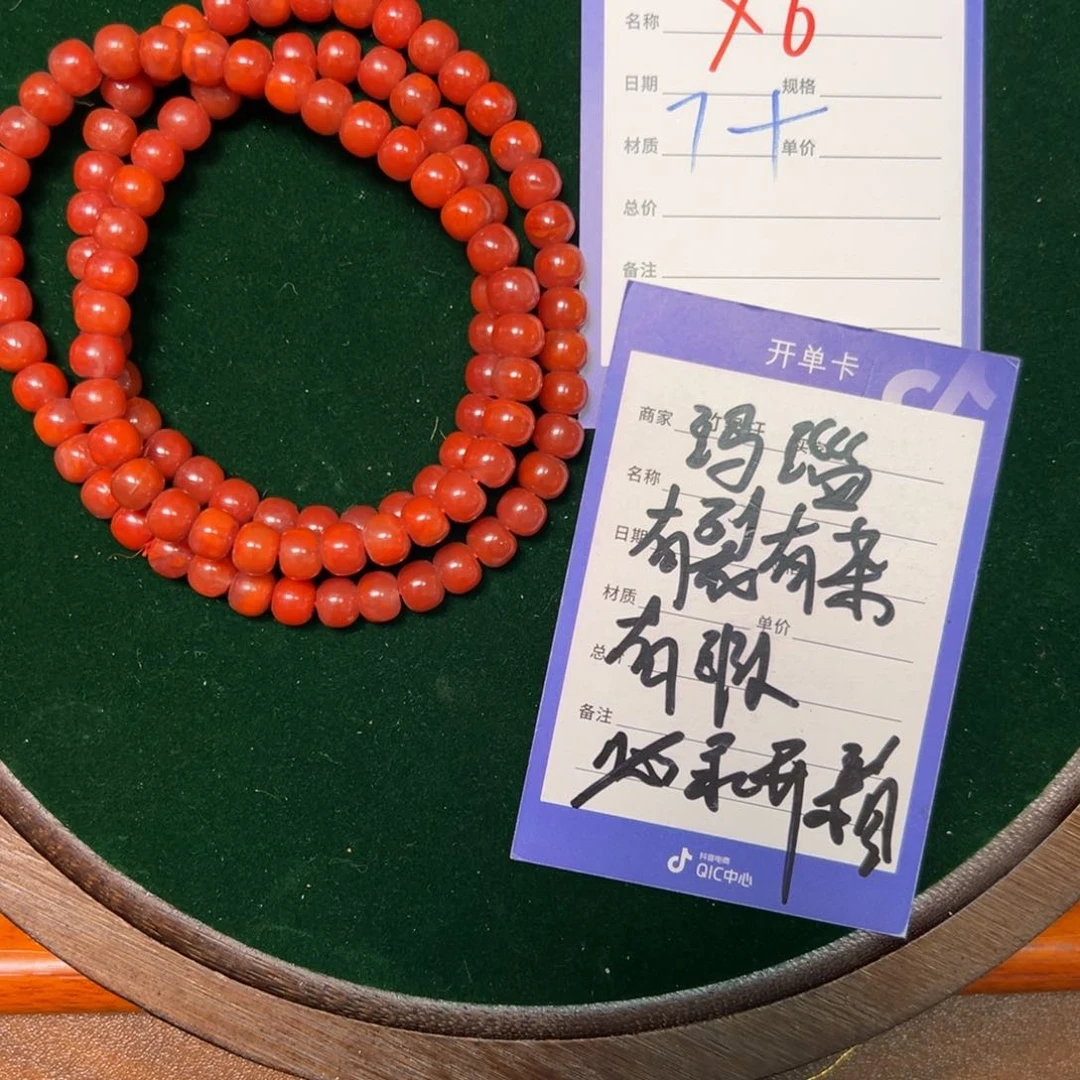 名称 X6
日期 规格
7十
材质 单价
总价
备注
开单卡
商家
名称
日期
材质
单价
备注
玛瑙
有裂有杂
有瑕
必录开视频
抖音电商
QIC中心